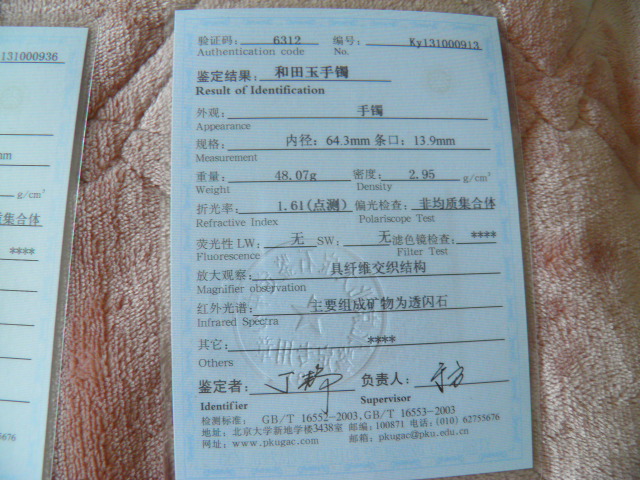 131000936
mm
g/cm³
质集合体
****
5676
验证码： 6312 编号： Ky131000913
Authentication code No.
鉴定结果： 和田玉手镯
Result of Identification
外观： 手镯
Appearance
规格： 内径：64.3mm 条口：13.9mm
Measurement
重量： 48.07g 密度： 2.95 g/cm³
Weight Density
折光率： 1.61(点测) 偏光检查： 非均质集合体
Refractive Index Polariscope Test
荧光性 LW: 无 SW: 无 滤色镜检查： ****
Fluorescence Filter Test
放大观察： 具纤维交织结构
Magnifier observation
红外光谱： 主要组成矿物为透闪石
Infrared Spectra
其它： ****
Others
鉴定者： 丁静 负责人：
Identifier Supervisor
检测标准： GB/T 16552-2003,GB/T 16553-2003
地址：北京大学新地学楼3438室 邮编：100871 电话：(010) 62755676
网址：www.pkugac.com 邮箱：pkugac@pku.edu.cn